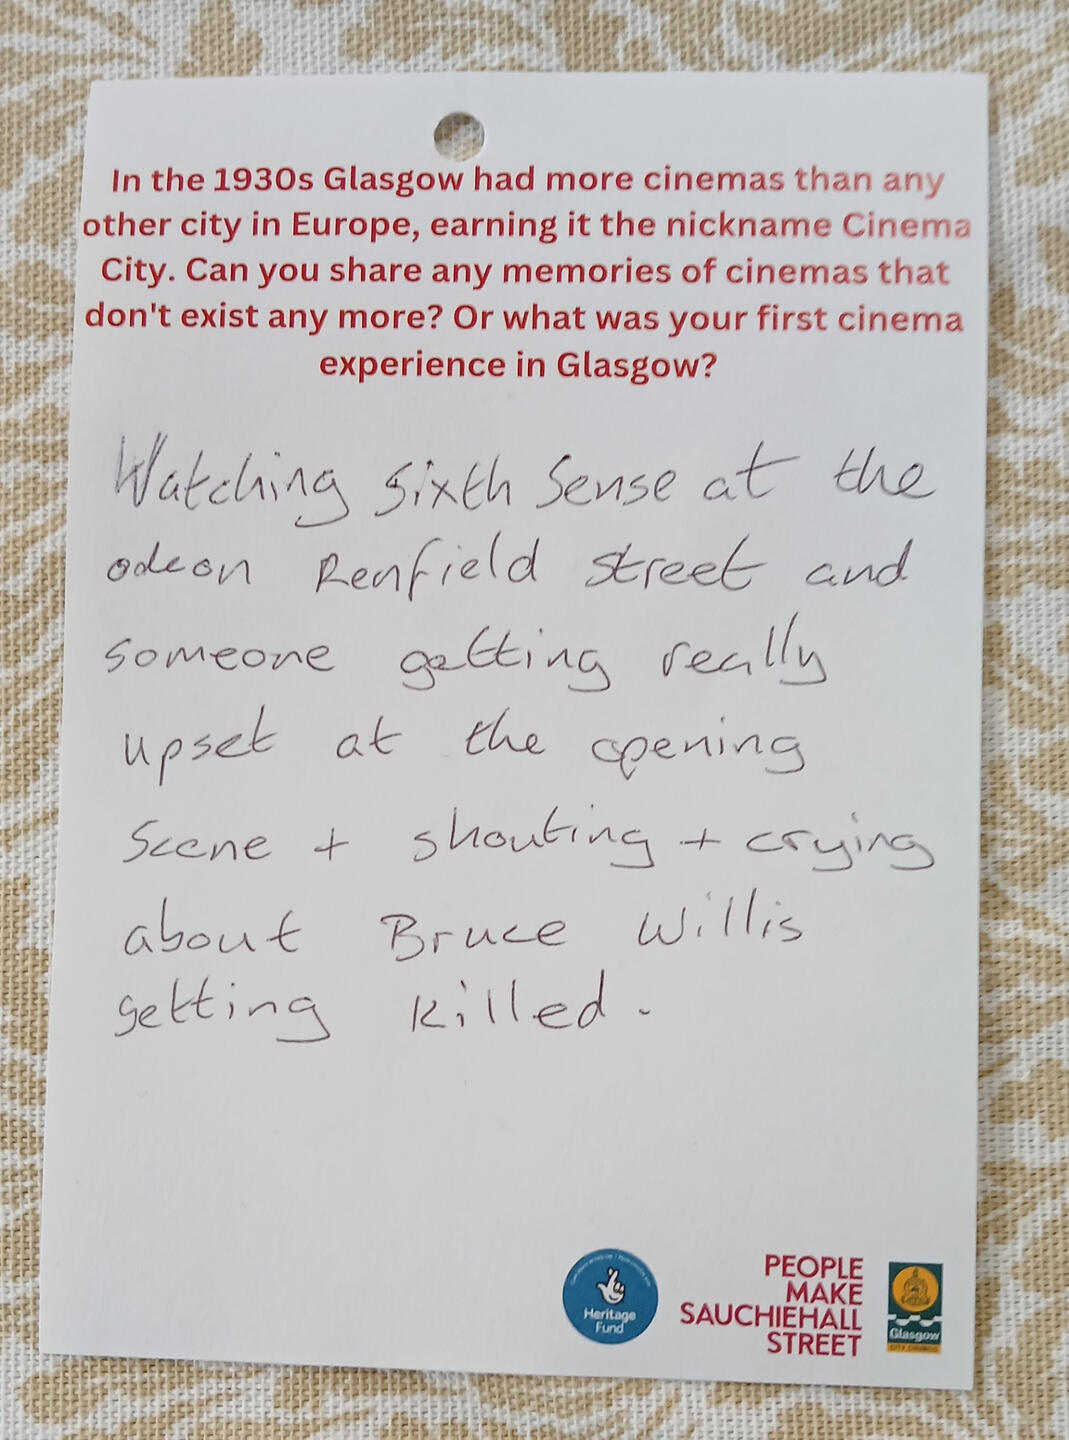 In the 1930s Glasgow had more cinemas than any
other city in Europe, earning it the nickname Cinema
City. Can you share any memories of cinemas that
don't exist any more? Or what was your first cinema
experience in Glasgow?
Watching Sixth Sense at the
odeon Renfield Street and
someone getting really
upset at the opening
Scene + shouting + crying
about Bruce Willis
getting killed.
Heritage
Fund
PEOPLE
MAKE
SAUCHIEHALL
STREET
Glasgow
CITY COUNCIL